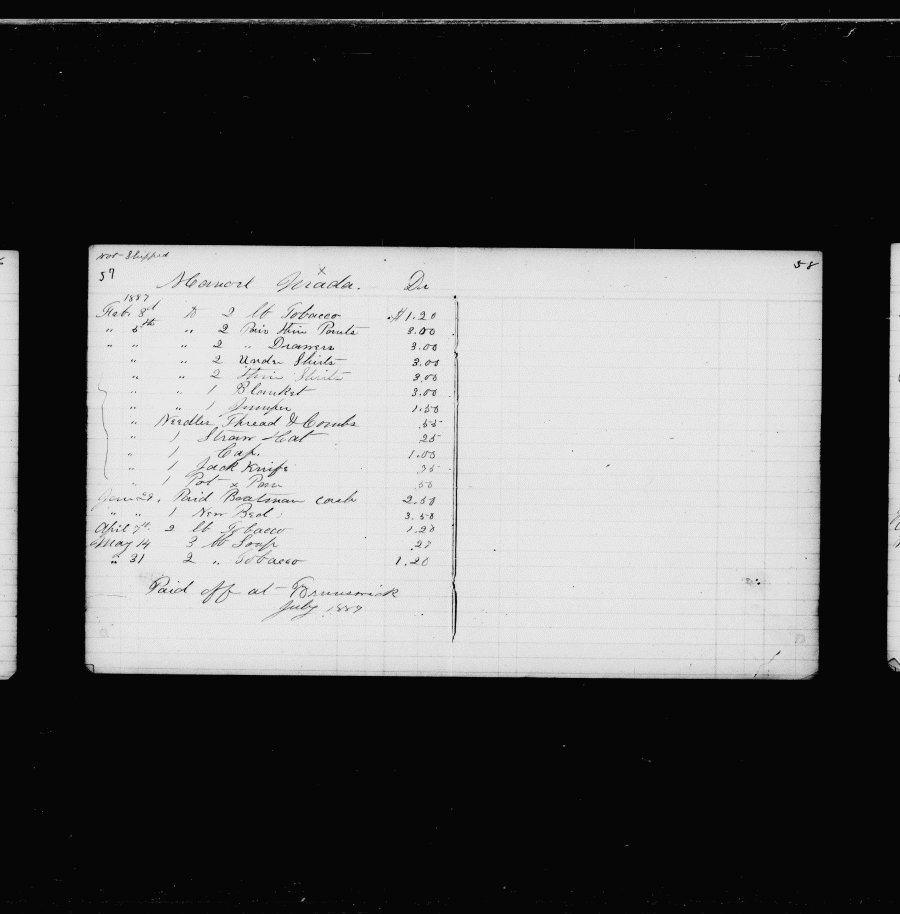 Not Shipped
57 58
Manoel Mada. Dr
x
1887
Feb. 3rd to 2 lb Tobacco $1.20
" 5th " 2 Pair thin Pants 3.00
" " " 2 " Drawers 3.00
" " 2 Under Shirts 3.00
" " 2 thin Shirts 3.00
" " 1 Blanket 3.00
" " 1 Jumper 1.50
" Needles Thread & Combs .55
" 1 Straw Hat 25
" 1 Cap. 1.00
" 1 Jack Knife
" 1 Pot & Pan .50
29. Paid Boatman cash 2.50
" " 1 New Bed 3.50
April 7th 2 lb Tobacco 1.20
May 14 3 lb Soap .27
" 31 2 " Tobacco 1.20
Paid off at Brunswick
July 1887